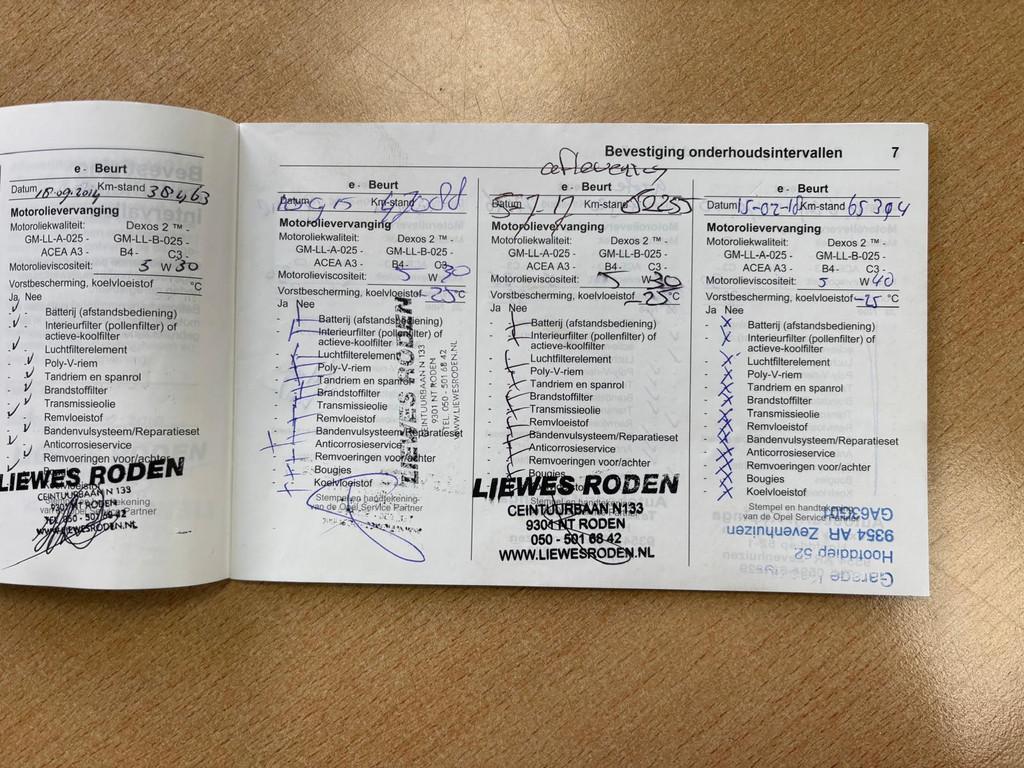 e - Beurt
Datum 18-09-2014 Km-stand 38463
Motorolievervanging
Motoroliekwaliteit: Dexos 2 ™ -
GM-LL-A-025 - GM-LL-B-025 -
ACEA A3 - B4 - C3 -
Motorolieviscositeit: 5 W 30
Vorstbescherming, koelvloeistof °C
Ja Nee
Batterij (afstandsbediening)
Interieurfilter (pollenfilter) of
actieve-koolfilter
Luchtfilterelement
Poly-V-riem
Tandriem en spanrol
Brandstoffilter
Transmissieolie
Remvloeistof
Bandenvulsysteem/Reparatieset
Anticorrosieservice
Remvoeringen voor/achter
LIEWES RODEN
CEINTUURBAAN N 133
9301 NT RODEN
TEL. 050 - 501 68 42
WWW.LIEWESRODEN.NL
Bevestiging onderhoudsintervallen 7
aflevering
e - Beurt
Datum Km-stand 47088
Motorolievervanging
Motoroliekwaliteit: Dexos 2 ™ -
GM-LL-A-025 - GM-LL-B-025 -
ACEA A3 - B4 - C3 -
Motorolieviscositeit: 5 W 30
Vorstbescherming, koelvloeistof -25 °C
Ja Nee
Batterij (afstandsbediening)
Interieurfilter (pollenfilter) of
actieve-koolfilter
Luchtfilterelement
Poly-V-riem
Tandriem en spanrol
Brandstoffilter
Transmissieolie
Remvloeistof
Bandenvulsysteem/Reparatieset
Anticorrosieservice
Remvoeringen voor/achter
Bougies
Koelvloeistof
Stempel en handtekening
van de Opel Service Partner
LIEWES RODEN
CEINTUURBAAN N 133
9301 NT RODEN
TEL. 050 - 501 68 42
WWW.LIEWESRODEN.NL
e - Beurt
Datum Km-stand 50255
Motorolievervanging
Motoroliekwaliteit: Dexos 2 ™ -
GM-LL-A-025 - GM-LL-B-025 -
ACEA A3 - B4 - C3 -
Motorolieviscositeit: 5 W 30
Vorstbescherming, koelvloeistof -25 °C
Ja Nee
Batterij (afstandsbediening)
Interieurfilter (pollenfilter) of
actieve-koolfilter
Luchtfilterelement
Poly-V-riem
Tandriem en spanrol
Brandstoffilter
Transmissieolie
Remvloeistof
Bandenvulsysteem/Reparatieset
Anticorrosieservice
Remvoeringen voor/achter
Bougies
LIEWES RODEN
Stempel en handtekening
CEINTUURBAAN N133
9301 NT RODEN
050 - 501 68 42
WWW.LIEWESRODEN.NL
e - Beurt
Datum 15-02-18 Km-stand 65394
Motorolievervanging
Motoroliekwaliteit: Dexos 2 ™ -
GM-LL-A-025 - GM-LL-B-025 -
ACEA A3 - B4 - C3 -
Motorolieviscositeit: 5 W 40
Vorstbescherming, koelvloeistof -25 °C
Ja Nee
Batterij (afstandsbediening)
Interieurfilter (pollenfilter) of
actieve-koolfilter
Luchtfilterelement
Poly-V-riem
Tandriem en spanrol
Brandstoffilter
Transmissieolie
Remvloeistof
Bandenvulsysteem/Reparatieset
Anticorrosieservice
Remvoeringen voor/achter
Bougies
Koelvloeistof
Stempel en handtekening
van de Opel Service Partner
Garage
Hoofddiep 52
9354 AR Zevenhuizen